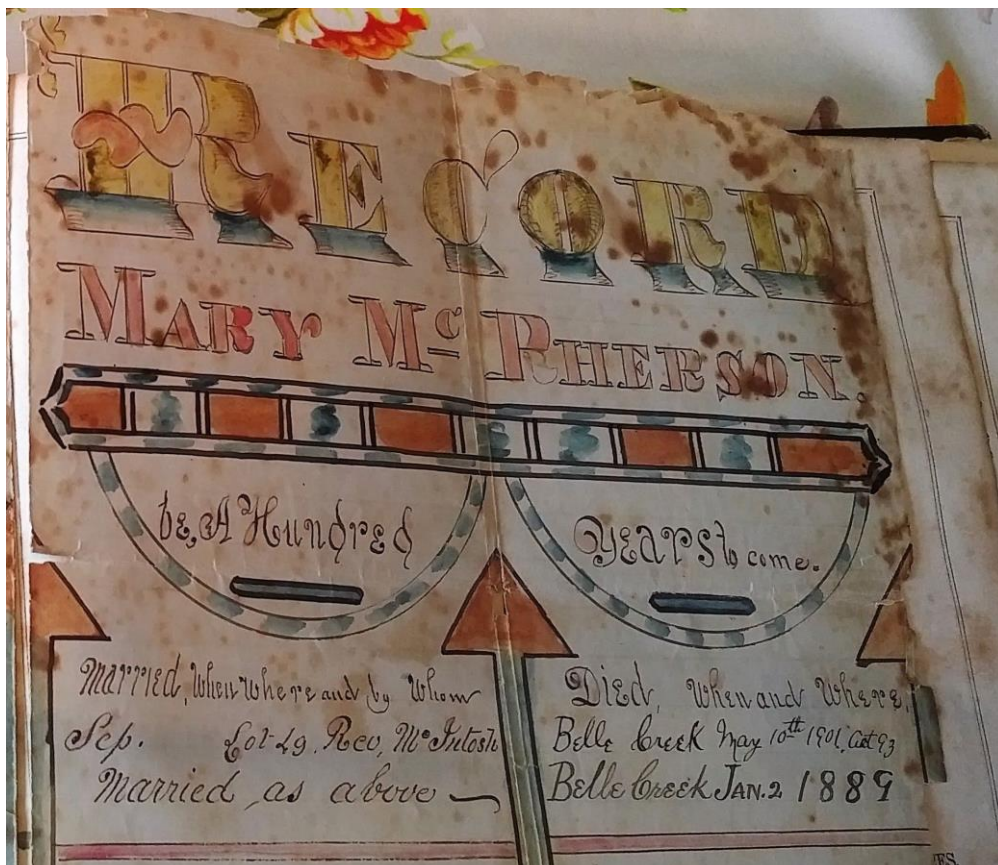 RECORD
MARY Mc PHERSON.
be, A Hundred
Years to come.
Married, When Where and by Whom
Sep. Lot 49, Rev, Mc Intosh
Married as above
Died, When and Where,
Belle Creek May 10th 1901, Aet 93
Belle Creek JAN. 2 1889